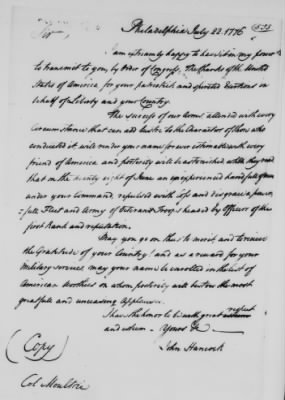 Philadelphia July 22. 1776
Sir,
I am extremely happy to have it in my power
to transmit to you, by Order of Congress, The Thanks of the United
States of America for your patriotick and spirited Exertions in
behalf of Liberty and your Country.
The success of our Arms attended with every
Circumstance that can add lustre to the Character of those who
conducted it will render your name for ever estimable with every
friend of America and posterity will be astonished when they read
that on the twenty eight of June an unexperienced handful of men
under your Command, repulsed with loss and disgrace a power-
full Fleet and Army of Veteran Troops headed by Officers of the
first Rank and reputation.
May you go on thus to merit, and to receive
the Gratitude of your Country! and as a reward for your
Military services may your name be enrolled in the list of
American Worthies on whom posterity will bestow the most
gratefull and unceasing Applause.
I have the honor to be with great respect
and esteem - Yours &c
John Hancock
(Copy)
Col Moultrie